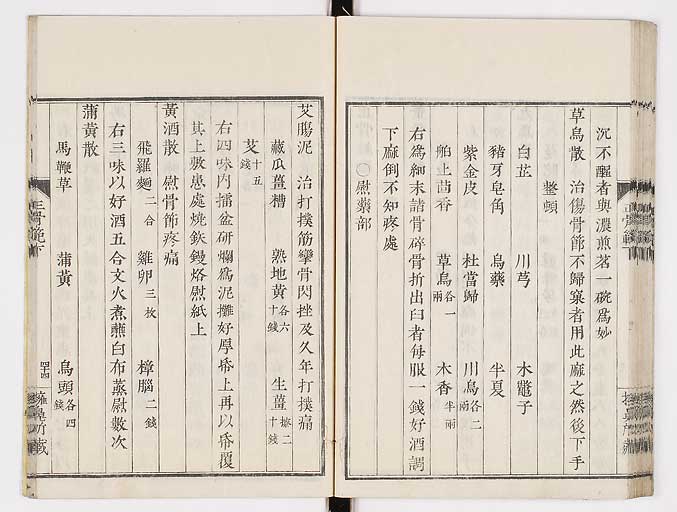 沉不醒者與濃煎茗一碗爲妙
草烏散　治傷骨節不歸窠者用此麻之然後下手
整頓
白芷　川芎　木鼈子
豬牙皂角　烏藥　半夏
紫金皮　杜當歸　川烏各二兩
舶上茴香　草烏各一兩　木香半兩
右爲細末諸骨碎骨折出臼者每服一錢好酒調
下麻倒不知疼處
〇熨藥部
艾膓泥　治打撲筋攣骨閃挫及久年打撲痛
藏瓜薑糟　熟地黃各六十錢　生薑二十錢
艾十五錢
右四味內擂盆研爛爲泥攤好厚帋上再以帋覆
其上敷患處燒鉄鏝烙熨紙上
黃酒散　熨骨節疼痛
飛羅麵二合　雞卵三枚　樟腦二錢
右三味以好酒五合文火煮蘸白布蒸熨數次
蒲黃散
馬鞭草　蒲黃　烏頭各四錢